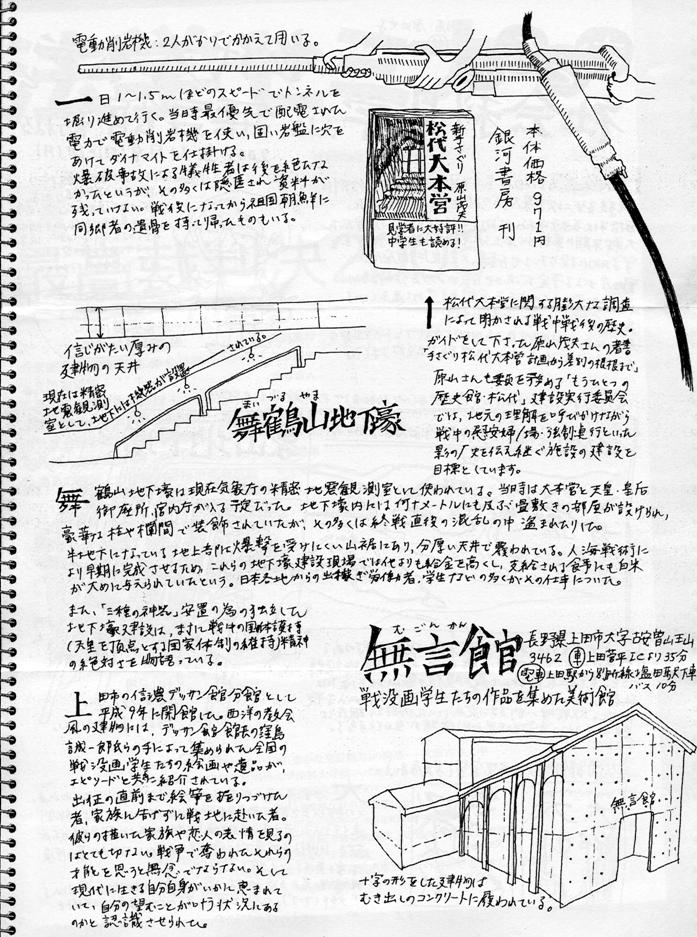 電動削岩機:2人がかりでかかえて用いる。
一日1〜1.5mほどのスピードでトンネルを
掘り進めて行く。当時最優先で配電された
電力で電動削岩機を使い、固い岩盤に穴を
あけてダイナマイトを仕掛ける。
爆破事故による犠牲者は後を絶たな
かったというが、その多くは隠匿され資料が
残っていない。戦後になってから祖国朝鮮に
同郷者の遺骨を持って帰ったものもいる。
新手さぐり
松代大本営
原山茂夫
見学者に大好評!!
中学生も読める!
本体価格 971円
銀河書房 刊
松代大本営に関する膨大な調査
によって明かされる戦中戦後の歴史。
ガイドをして下さった原山茂夫さんの著書
「手さぐり松代大本営 計画から差別の根源まで」
原山さんも委員を務める「もうひとつの
歴史館・松代」建設実行委員会
では、地元の理解を呼びかけながら
戦中の慰安婦、強制連行といった
影の歴史を伝え継ぐ施設の建設を
目標としています。
信じがたい厚みの
建物の天井
現在は精密
地震観測
室として、地下には機器が設置
されている。
まいづる やま
舞鶴山地下壕
舞鶴山地下壕は現在気象庁の精密地震観測室として使われている。当時は大本営と天皇・皇后
御座所、宮内庁が入る予定だった。地下壕内には何十メートルにも及ぶ畳敷きの部屋が設けられ、
豪華な柱や欄間で装飾されていたが、その多くは終戦直後の混乱の中 盗まれたりした。
半地下になっている地上部は爆撃を受けにくい山裾にあり、分厚い天井で覆われている。人海戦術に
より早期に完成させるため、これらの地下壕建設現場では他よりも給金を高くし、支給される食事にも白米
が大めに与えられていたという。日本各地からの出稼ぎ労働者、学生などの多くがその仕事についた。
また、「三種の神器」安置の為の
地下壕建設は、まさに戦中の国体護持
(天皇を頂点とする国家体制の維持)精神
の絶対さを物語っている。
むごんかん
無言館
長野県上田市大字古安曽山王山
3462 車 上田菅平ICより35分
電車 上田駅から別所線、塩田町下車
バス10分
戦没画学生たちの作品を集めた美術館
上田市の信濃デッサン館分館として
平成9年に開館した。西洋の教会
風の建物には、デッサン館館長の窪島
誠一郎氏らの手によって集められた全国の
戦没画学生たちの絵画や遺品が
エピソードと共に紹介されている。
出征の直前まで絵筆を握りつづけた
者、家族に告げずに戦地に赴いた者。
彼らの描いた家族や恋人の表情を見るの
はとても切ない。戦争で奪われたそれらの
才能を思うと無念でならない。そして
現代に生きる自分自身がいかに恵まれ
ていて、自分の望むことが叶う状況にある
のかと認識させられた。
無言館
十字の形をした建物は
むき出しのコンクリートに覆われている。